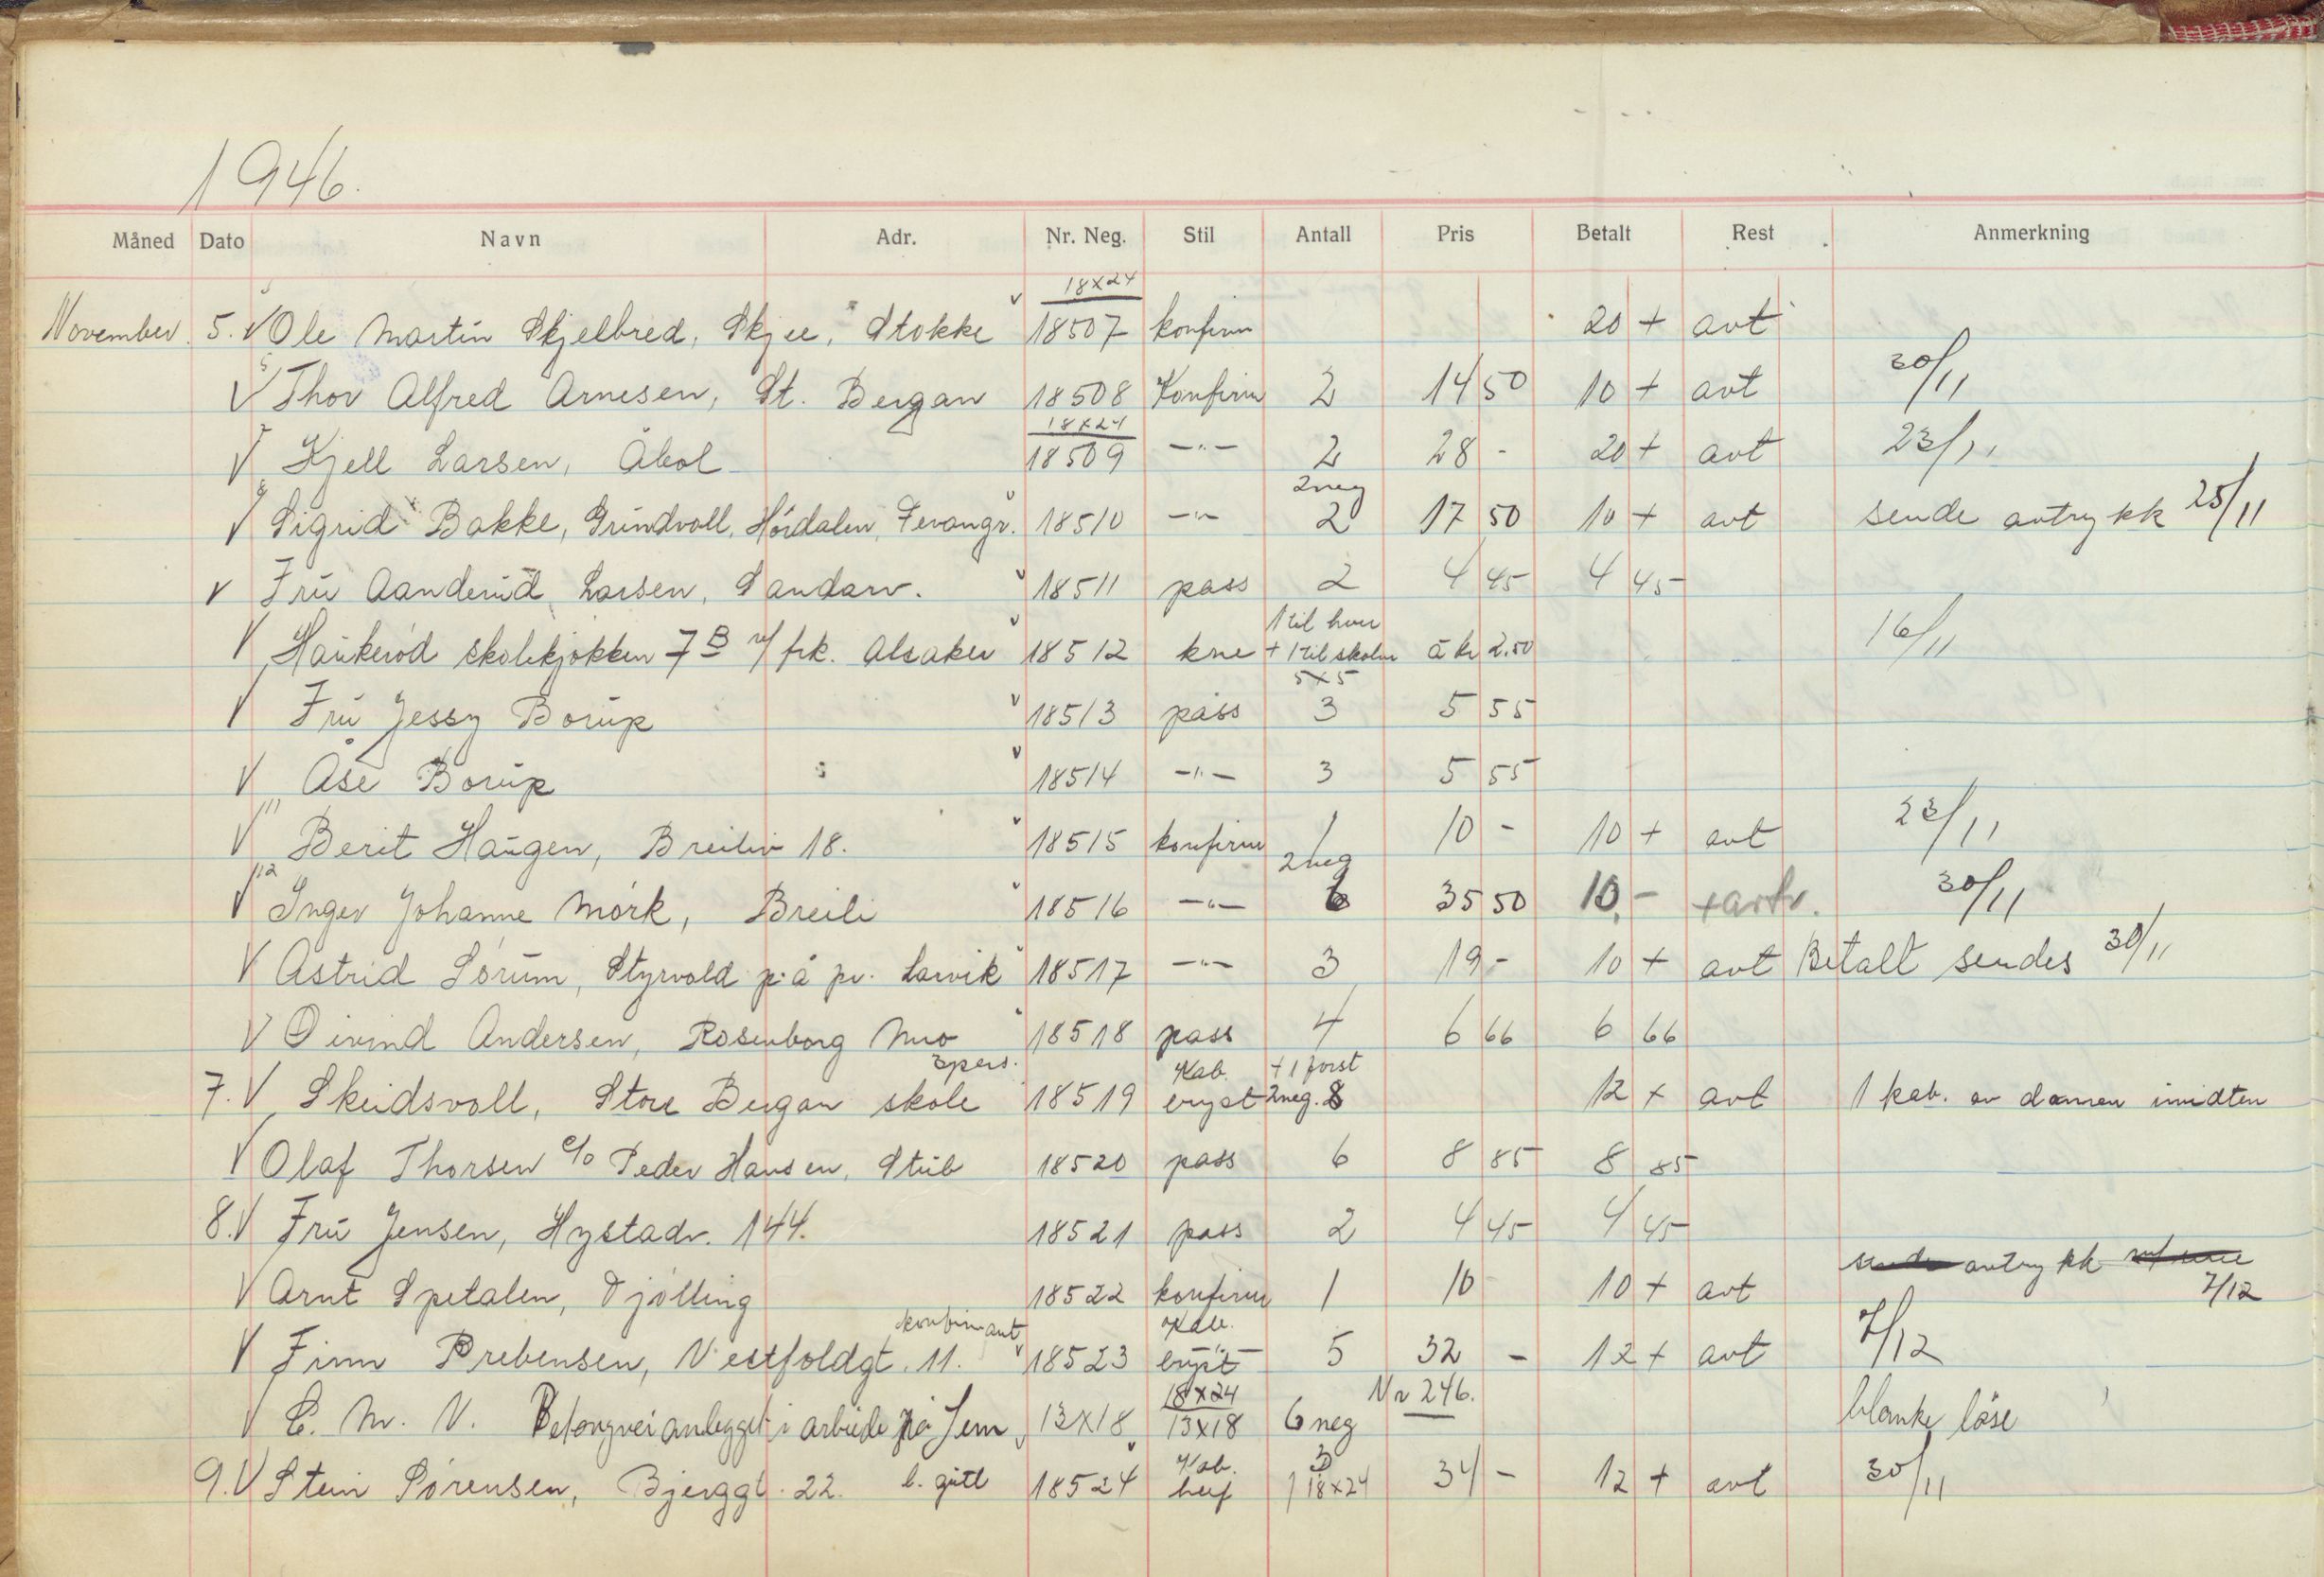 1946.
Måned Dato Navn Adr. Nr. Neg. Stil Antall Pris Betalt Rest Anmerkning
18x24
November. 5. V Ole Martin Skjelbred, Skjee, Stokke 18507 konfirm 20 + avt
V Thor Alfred Arnesen, St. Bergan 18508 Konfirm 2 14 50 10 + avt 30/11
18x24
V Kjell Larsen, Åbol 18509 -"- 2 28 - 20 + avt 23/11
2 neg
V Sigrid Bakke, Grindvoll, Hördalen, Fevangr. 18510 -"- 2 17 50 10 + avt sende avtrykk 25/11
V Fru Aanderud Larsen, Sandarv. 18511 pass 2 4 45 4 45
1 til hver
V Haukeröd skolekjökken 7 B v/ frk. Alsaker 18512 kne + 1 til skolen á kr 2.50 16/11
5x5
V Fru Jessy Borup 18513 pass 3 5 55
V Åse Borup 18514 -"- 3 5 55
V 11 Berit Haugen, Breiliv 18. 18515 konfirm 1 10 - 10 + avt 23/11
2 neg
V 12 Inger Johanne Mörk, Breili 18516 -"- 6 35 50 10,- + avtr. 30/11
V Astrid Sörum, Styrvold p.å pr. Larvik 18517 -"- 3 19 - 10 + avt Betalt sendes 30/11
V Oivind Andersen, Rosenborg Mro 18518 pass 4 6 66 6 66
3 pers. Kab. + 1 forst
7. V Skeidsvoll, Store Bergan skole 18519 bryst 2 neg. 8 12 + avt 1 kab. av damen imidten
V Olaf Thorsen c/o Peder Hansen, Stub 18520 pass 6 8 85 8 85
8. V Fru Jensen, Hystadv. 144. 18521 pass 2 4 45 4 45
avtrykk
V Arnt Spetalen, Tjölling 18522 konfirm 1 10 10 + avt 7/12
konfirmant Kab.
V Finn Prebensen, Vestfoldgt. 11. 18523 bryst 5 32 - 12 + avt 7/12
18x24 Nr 246.
V E. M. V. Betongveianlegget i arbeide på Jem 13x18 13x18 6 neg blanke löse
Kab. 3
9. V Stein Sörensen, Bjerggt. 22. l. gutt 18524 1 18x24 34 - 12 + avt 30/11